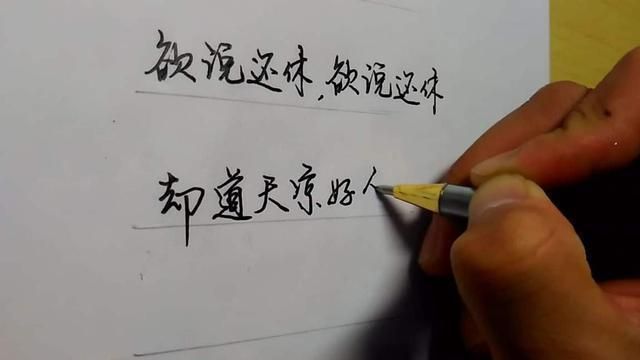 欲说还休，欲说还休
却道天凉好